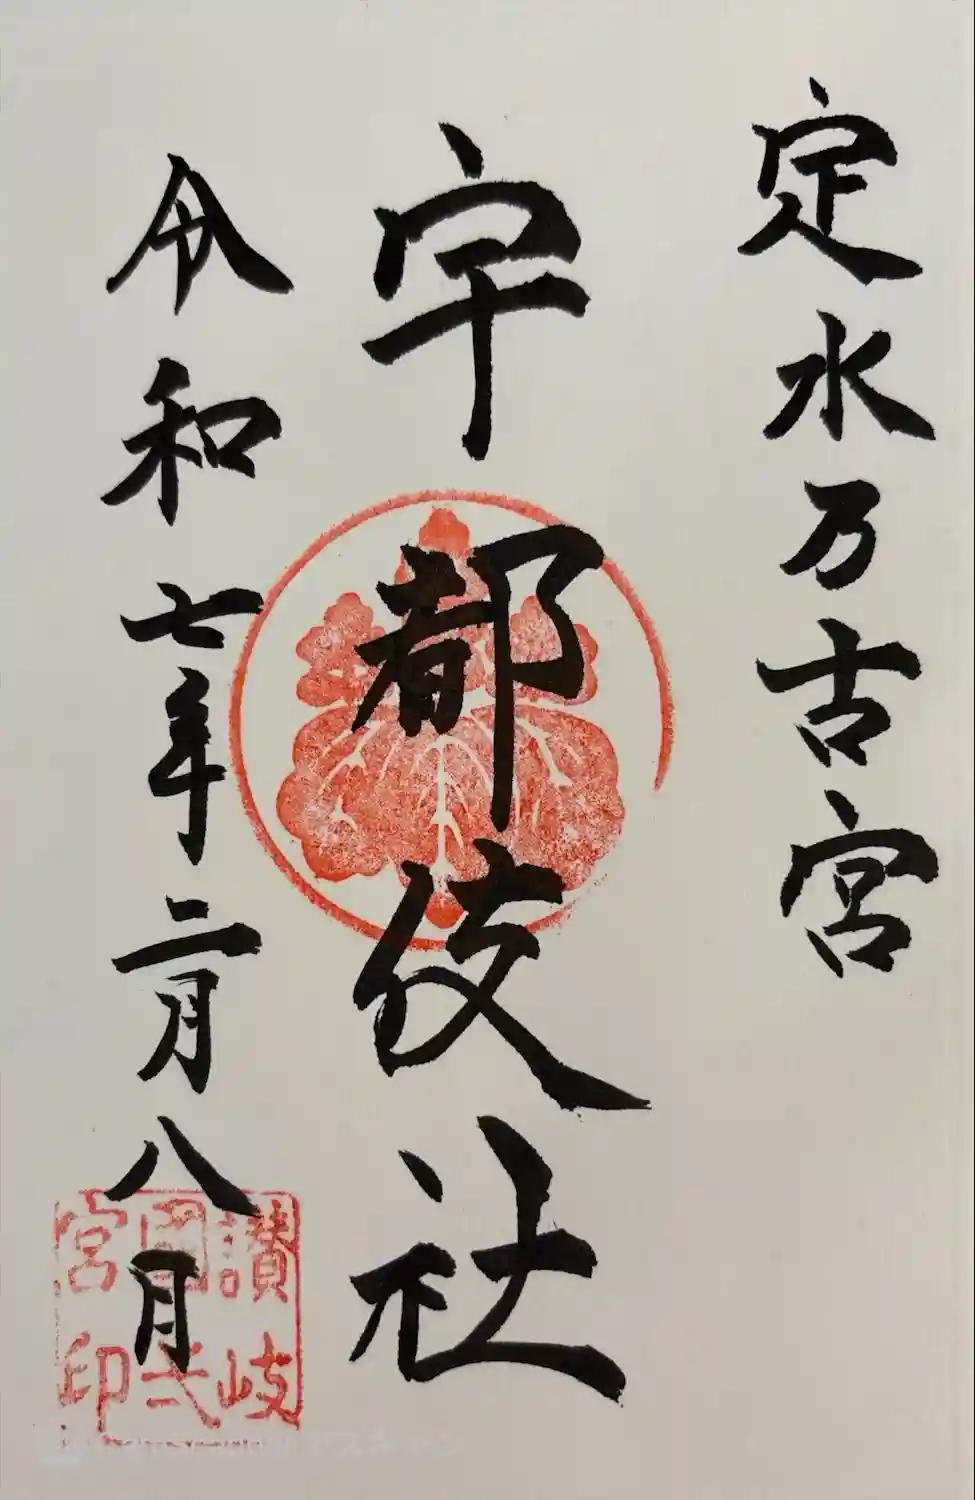 定水万古宮
宇都伎社
令和七年二月八日
讃岐
國弍
宮印